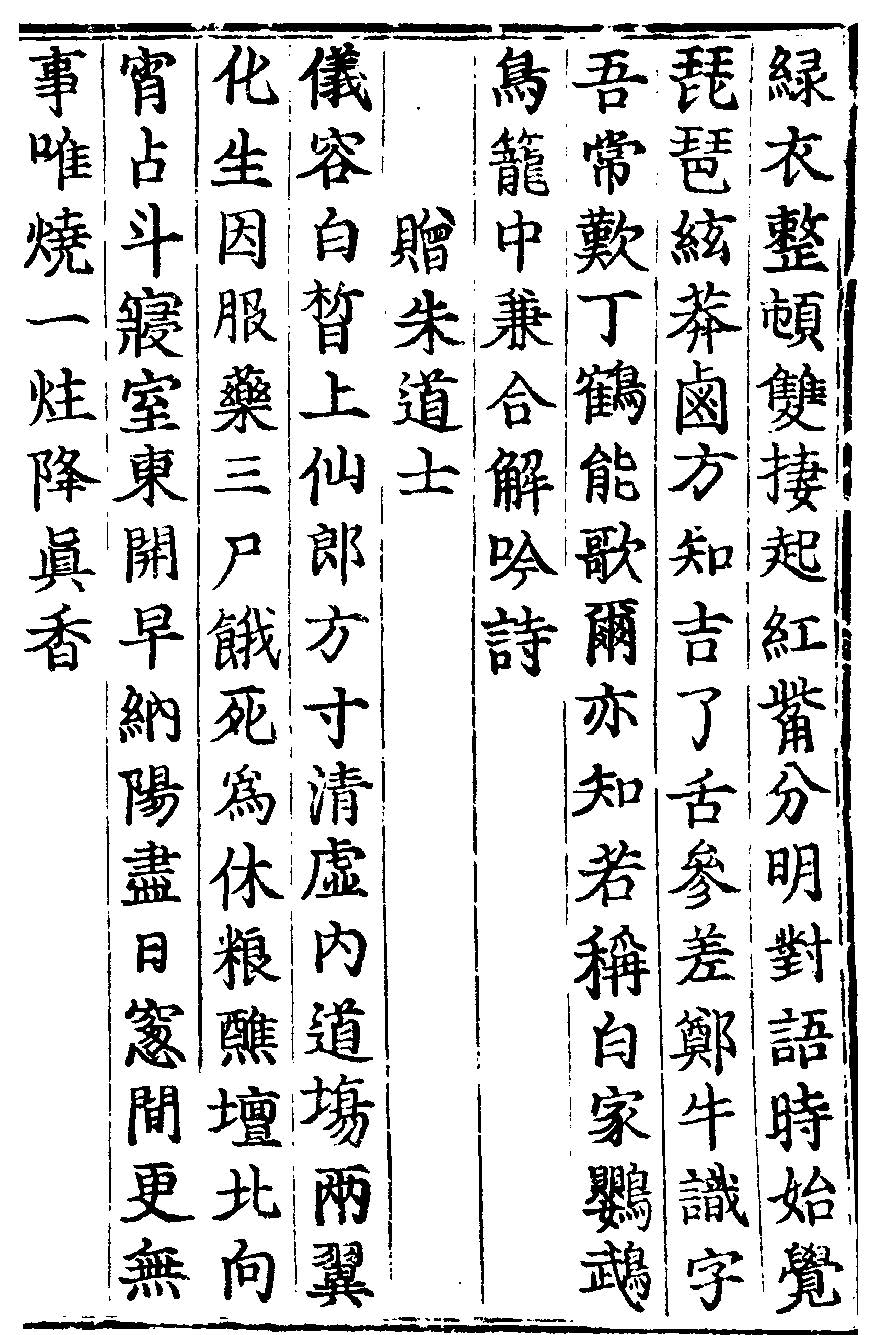 綠衣整頓雙捿起紅觜分明對語時始覺
琵琶絃莽鹵方知吉了舌參差鄭牛識字
吾常歎丁鶴能歌爾亦知若稱白家鸚鵡
鳥籠中兼合解吟詩
贈朱道士
儀容白皙上仙郎方寸清虛內道塲兩翼
化生因服藥三尸餓死爲休粮醮壇北向
宵占斗寢室東開早納陽盡日窓間更無
事唯燒一炷降眞香